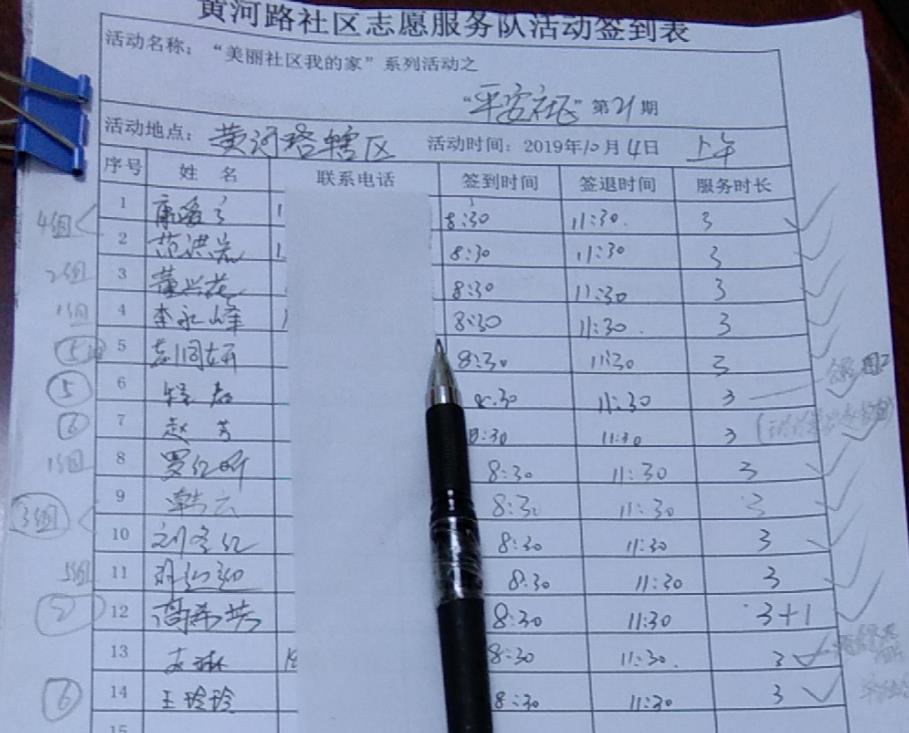 黄河路社区志愿服务队活动签到表
活动名称：“美丽社区我的家”系列活动之
“平安社区”第21期
活动地点：黄河路辖区 活动时间：2019年10月4日 上午
序号 姓名 联系电话 签到时间 签退时间 服务时长
4组 1 8:30 11:30. 3
2 范洪岩 8:30 11:30 3
2组 3 董兴花 8:30 11:30 3
1组 4 李永峰 8:30 11:30. 3
5 8:30 11:30 3
⑤ 6 8:30 11:30 3
⑥ 7 赵芳 8:30 11:30 3
1组 8 罗红昕 8:30 11:30 3
3组 9 韩云 8:30 11:30 3
10 刘冬红 8:30 11:30 3
5组 11 8:30 11:30 3
② 12 高希芳 8:30 11:30 3+1
13 8:30 11:30. 3
⑥ 14 王玲玲 8:30 11:30 3
15